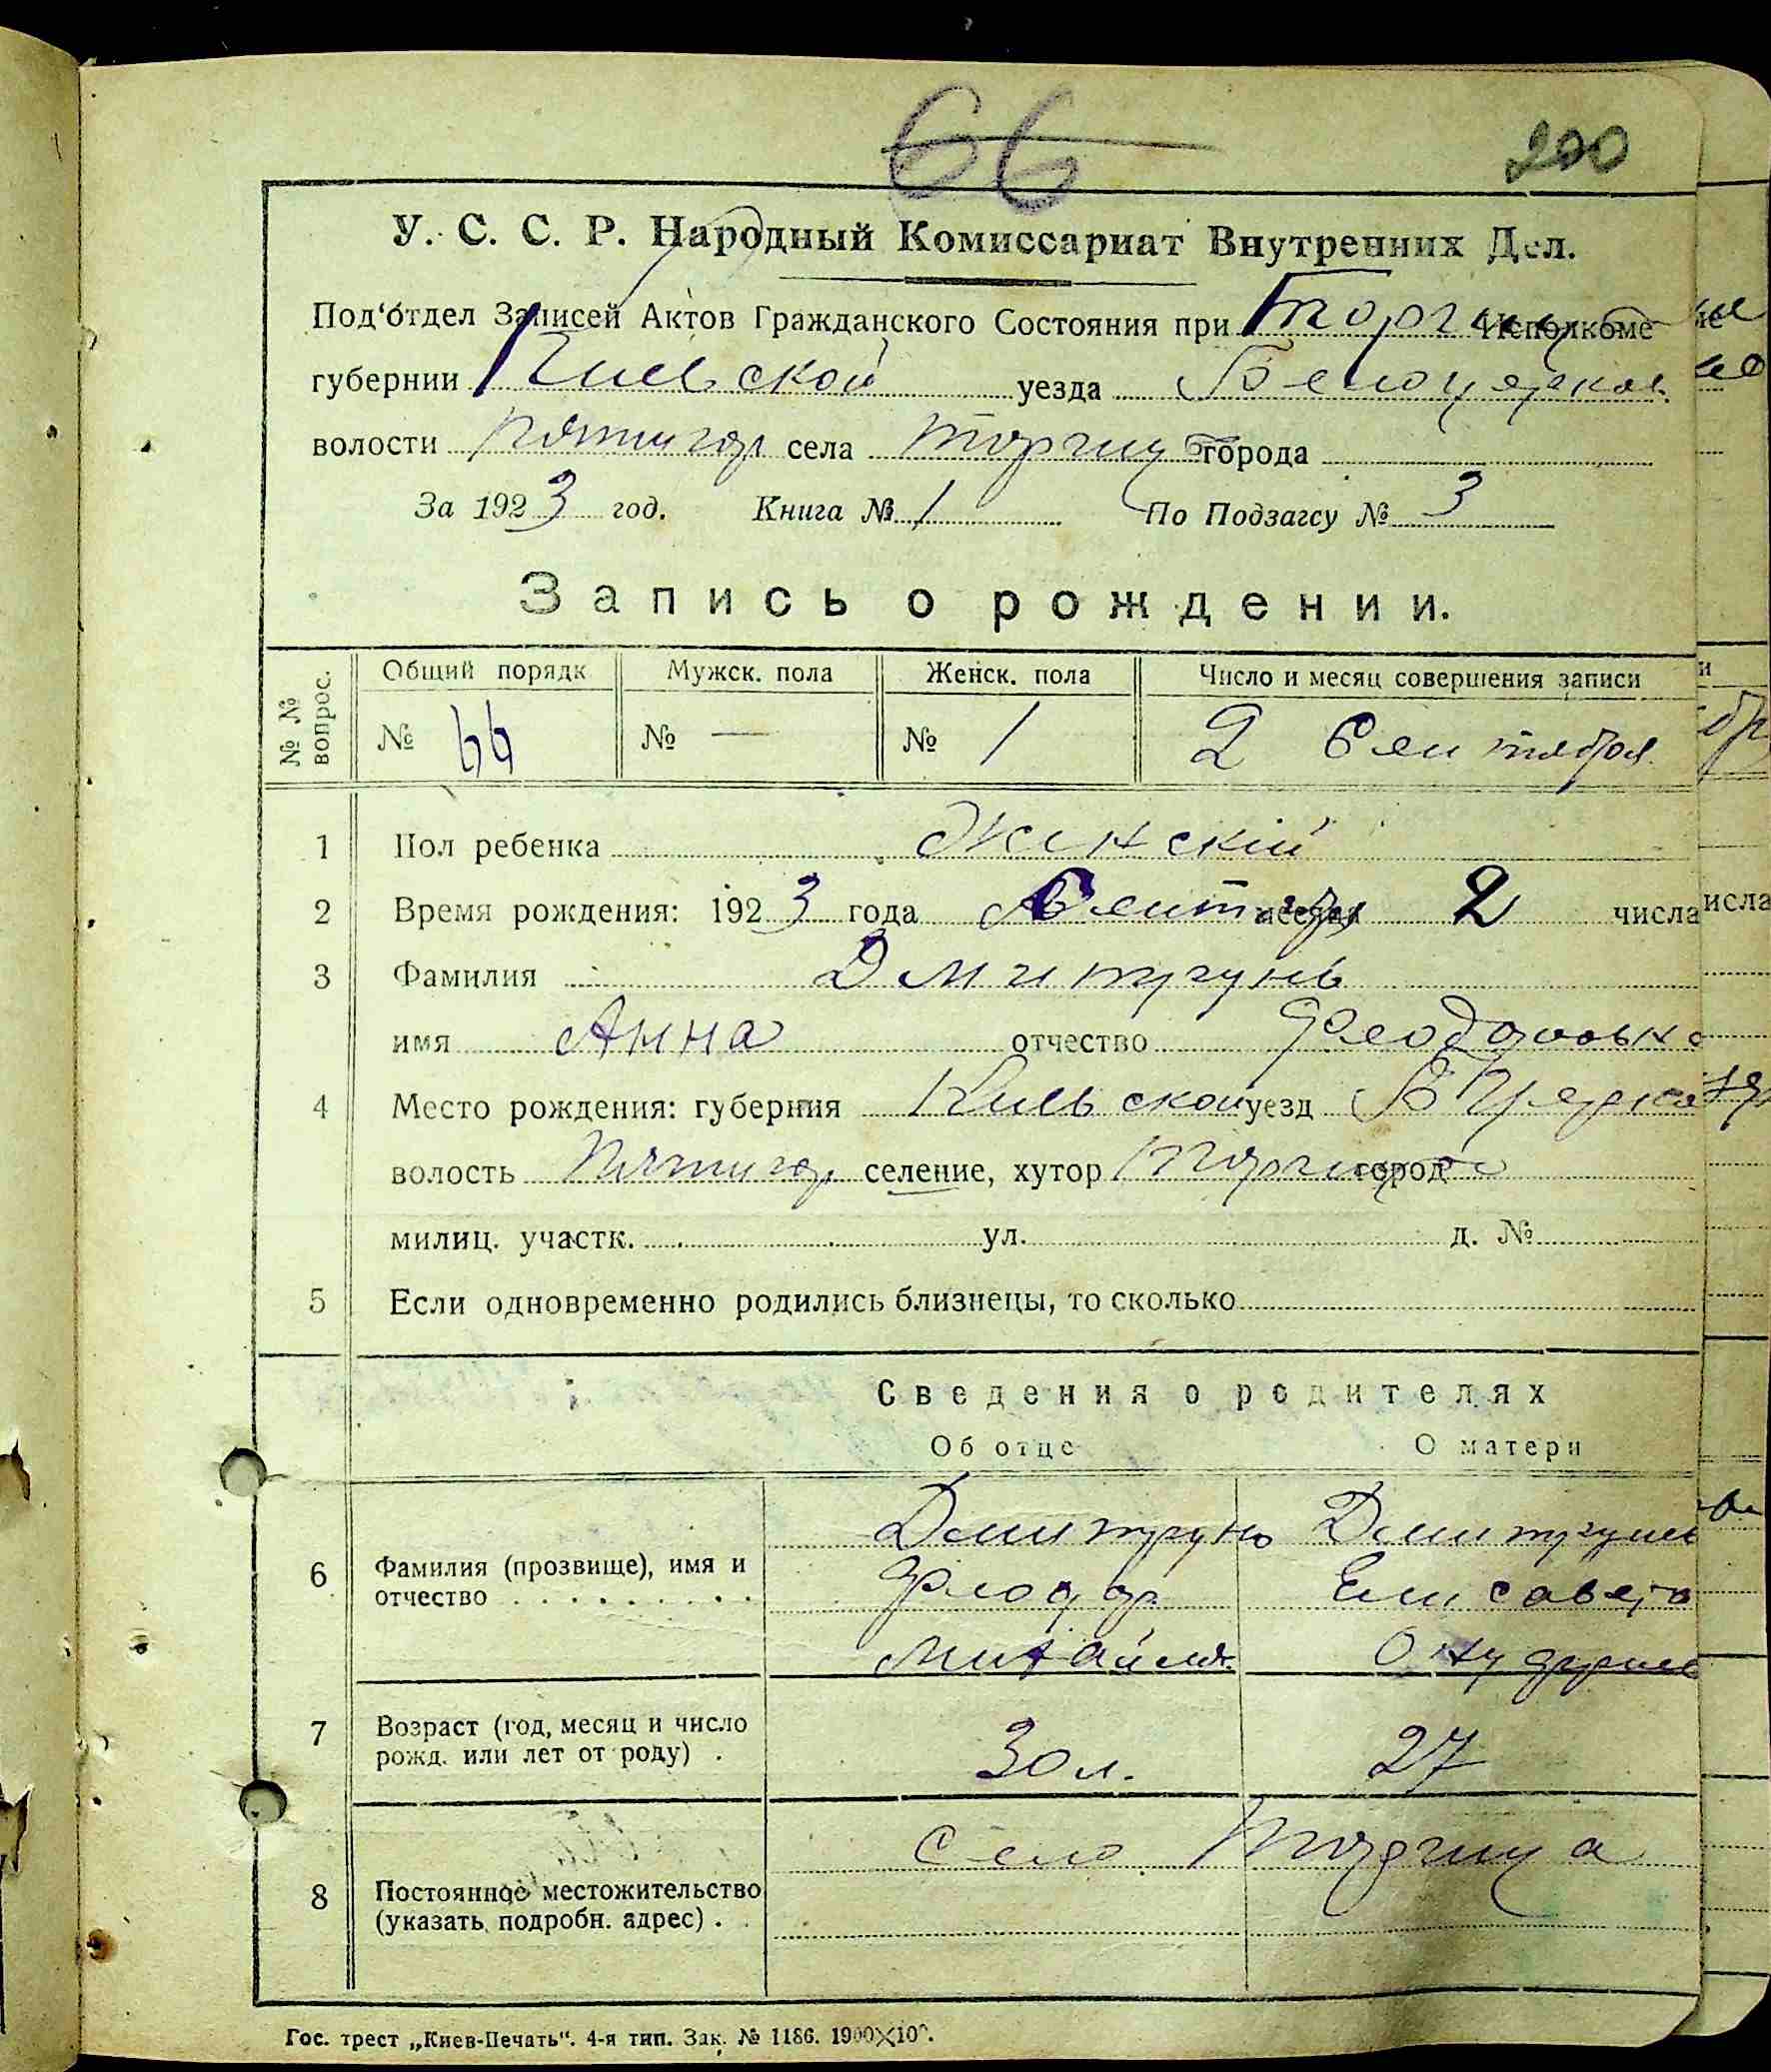 66
200
У. С. С. Р. Народный Комиссариат Внутренних Дел.
Под'отдел Записей Актов Гражданского Состояния при Торчиц Исполкоме
губернии Киевской уезда Белоцерков.
волости Пятигор села Торчиц города
За 1923 год. Книга № 1 По Подзагсу № 3
Запись о рождении.
№ № вопрос. Общий порядк Мужск. пола Женск. пола Число и месяц совершения записи
№ 66 № — № 1 2 Сентября
1 Пол ребенка Женскій
2 Время рождения: 1923 года Сентябр месяца 2 числа
3 Фамилия Дмитрунь
имя Анна отчество Феодоровна
4 Место рождения: губерния Киевской уезд Б Церков
волость Пятигор. селение, хутор Торчица город
милиц. участк. ул. д. №
5 Если одновременно родились близнецы, то сколько
Сведения о родителях
Об отце О матери
Дмитрунь Дмитрунь
6 Фамилия (прозвище), имя и отчество Феодор Елисавета
Михайлов. Онуфриев
7 Возраст (год, месяц и число рожд. или лет от роду) . 30 л. 27
Село Торчица
8 Постоянное местожительство (указать подробн. адрес) .
Гос. трест „Киев-Печать". 4-я тип. Зак. № 1186. 1900×100.